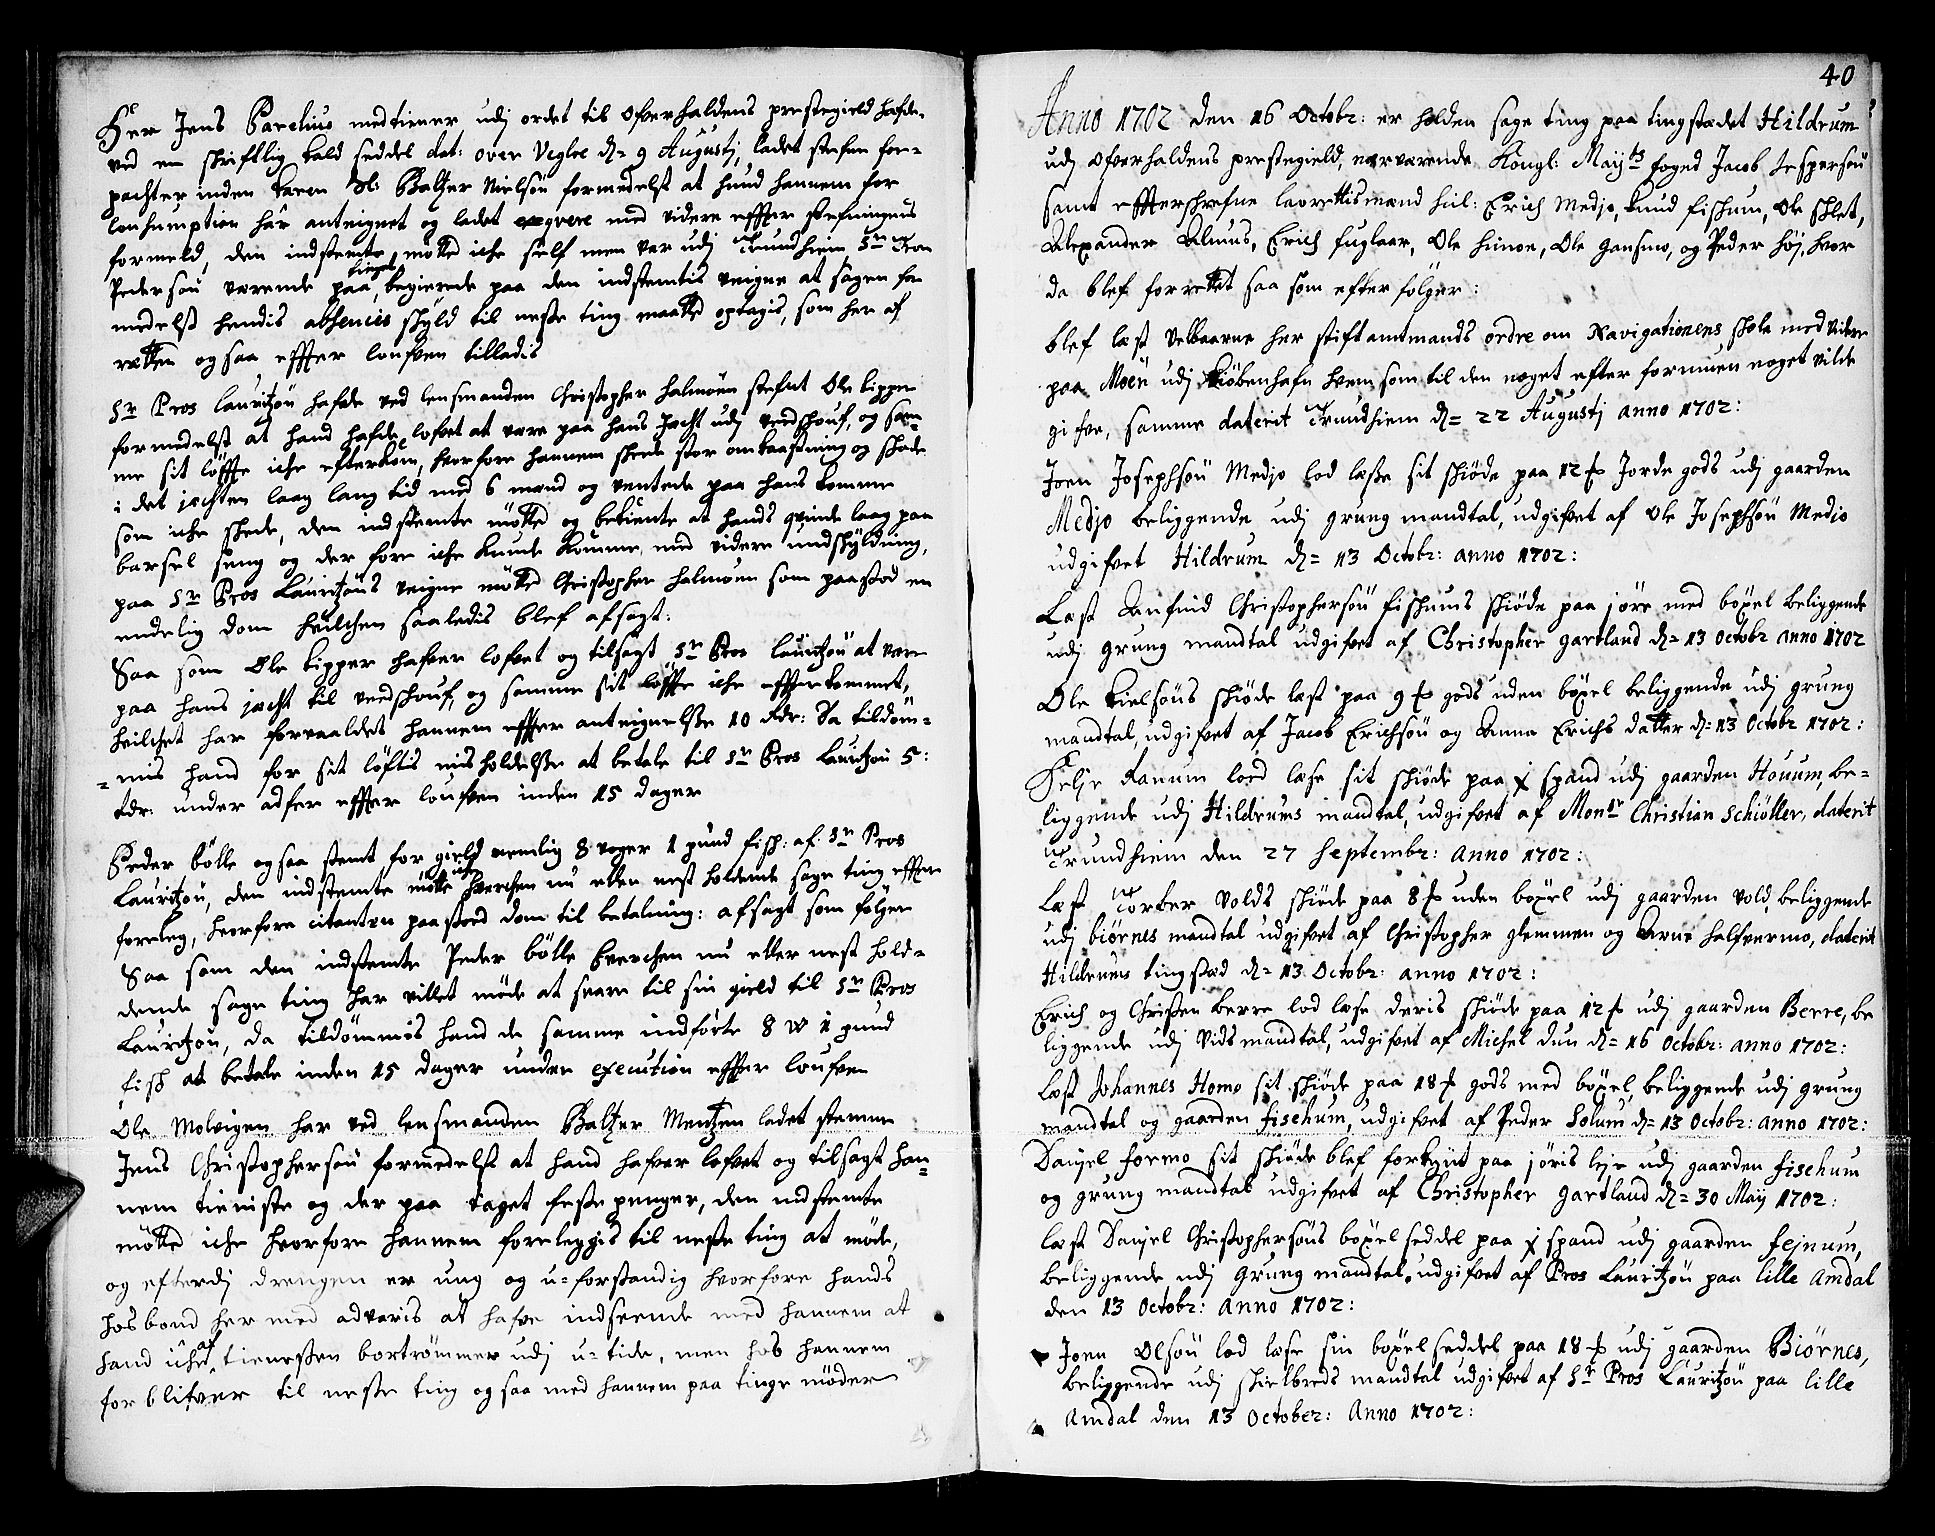 Her Jens Parelius medtiener udj ordet til Ofverhaldens prestegield hafde
ved en skriftlig kald seddel dat: over Veglee d= 9 Augustj, ladet stefne for-
pachter inden Sl: Baltzer Nielsøn formedelst at hand hannem for
Consumption har anteignet og ladet exqvere med videre effter stefningens
formeld, den indstemte møtte iche self men var udj Trundhiem Sr
Pedersøn værende paa tinget, begierede paa den indstemtis veigne at sagen for
medelst hendis absencis skyld til neste ting maatte optagis, som her af
retten ogsaa effter loufven tilladis
Sr Pros Lauritzøn hafde ved lensmanden Christopher Halmoen stefnt Ole Kipper
formedelst at hand hafde lofvet at være paa hans Jacht udj verdschouf, og sam-
me sit løffte iche efterkom, hvorfore hannem skeede stor ombkaastning og skade
i det jachten laag lang tid med 6 mand og ventede paa hans komme
som iche skede, den indstemte møtte og bekiente at hands qvinde laag paa
barsel seng og der fore iche kunde komme med videre undskyldning,
paa Sr Pros Lauritzøns veigne møtte Christopher Halmoen som paastod en
endelig dom hvilchen saaledis blef afsagt:
Saa som Ole Kipper hafver lofvet og tilsagt Sr Pros Lauritzøn at være
paa hans jacht til verdschouf, og samme sit løffte iche effterkommet,
hvilchet har forvaaldet hannem effter anteignelse 10 rdr: Da tildøm-
-mis hand for sit løftis misholdelse at betale til Sr Pros Lauritzøn 5:
rdr: under adfær effter loufven inden 15 dager
Peder bölle ogsaa stemt for gield nemlig 8 voger 1 pund fisch: af Sr Pros
Lauritzøn, den indstemte møtte iche hverchen nu eller nest holdende sage ting effter
foreleg, hvorfore citanten paastod dom til betalning: afsagt som følger
Saa som den indstemte Peder bölle hverchen nu eller nest hold-
dende sage ting har villet møde at svare til sin gield til Sr Pros
Lauritzøn, da tildømmis hand de samme indførte 8 w 1 pund
fisch at betale inden 15 dager under execution effter loufven
Ole Molvigen har ved lensmanden Baltzer Mentzen ladet stemme
Jens Christophersøn formedelst at hand hafver lofvet og tilsagt han-
nem tieniste og der paa taget feste penger, den indstemte
møtte iche hvorfore hannem foreleggis til neste ting at møde,
og efterdj drengen er ung og u-forstandig hvorfore hands
hosbond her med advaris at hafve indseende med hannem at
hand iche af tienesten bortrømmer udj u-tide, men hos hannem
forblifver til neste ting og saa med hannem paa tinge møder
40
Anno 1702 den 16 Octobr: er holden sage ting paa tingstædet Hildrum
udj Ofverhaldens prestegield, nerværende Kongl: Maijts foged Jacob Jespersøn
samt effterschrefne laurettismænd hiil: Erich Medjo, Knud Fishum, Ole Slet,
Alexander Almus, Erich Fuglaar, Ole Himoe, Ole Gansmo, og Peder Høj, hvor
da blef forrettet saa som efter følger:
blef læst velbaarne her stiftamtmands ordre om Navigationens skole med videre
paa Møen udj Kiöbenhafn hvem som til den noget efter formuen noget vilde
gifve, samme daterit Trundhiem d= 22 Augustj anno 1702:
Joen Josephsøn Medjo lod læse sit skiöde paa 12 Jorde gods udj gaarden
Medjo beliggende udj grung mandtal, udgifvet af Ole Josephsøn Medjo
udgifvet Hildrum d= 13 Octobr: anno 1702:
Læst Anfind Christophersøn Fishums skiöde paa jøre med böxel beliggende
udj Grung mandtal udgifvet af Christopher Gartland d= 13 Octobr anno 1702
Ole Kielsøns skiöde læst paa 9 gods uden böxel beliggende udj grung
mandtal, udgifvet af Jacob Erichsøn og Anna Erichs datter d= 13 Octobr 1702:
Helje Ranum lood læse sit skiöde paa spand udj gaarden Houum, be-
liggende udj Hildrums mandtal, udgifvet af Monsr Christian Schiöller, daterit
Trundhiem den 27 Septembr: Anno 1702:
Læst Torber Volds skiöde paa 8 uden böxel udj gaarden Vold, beliggende
udj biörnes mandtal udgifvet af Christopher Glemmen og Arne Halfvermo, daterit
Hildrums tingstæd d= 13 Octobr: anno 1702:
Erich og Christen Berre lod læse deris skiöde paa 12 udj gaarden Berre, be
liggende udj Vids mandtal, udgifvet af Michel Dun d= 16 Octobr: anno 1702:
Læst Johannes Homo sit skiöde paa 18 gods med böxel, beliggende udj grung
mandtal og gaarden Fischum, udgifvet af Peder Solum d= 13 Octobr: anno 1702:
Danjel Formo sit skiöde blef forkynt paa jöris leje udj gaarden Fischum
og grung mandtal udgifvet af Christopher Gartland d= 30 Maij 1702:
Læst Danjel Christophersøns böxel seddel paa spand udj gaarden Fejnum,
beliggende udj Grung mandtal, udgifvet af Pros Lauritzøn paa lille Amdal
den 13 Octobr: Anno 1702:
Joen Olsøn lod læse sin böxel seddel paa 18 udj gaarden Biörnes,
beliggende udj skielbreds mandtal udgifvet af Sr Pros Lauritzøn paa lille
Amdal den 13 October: Anno 1702: